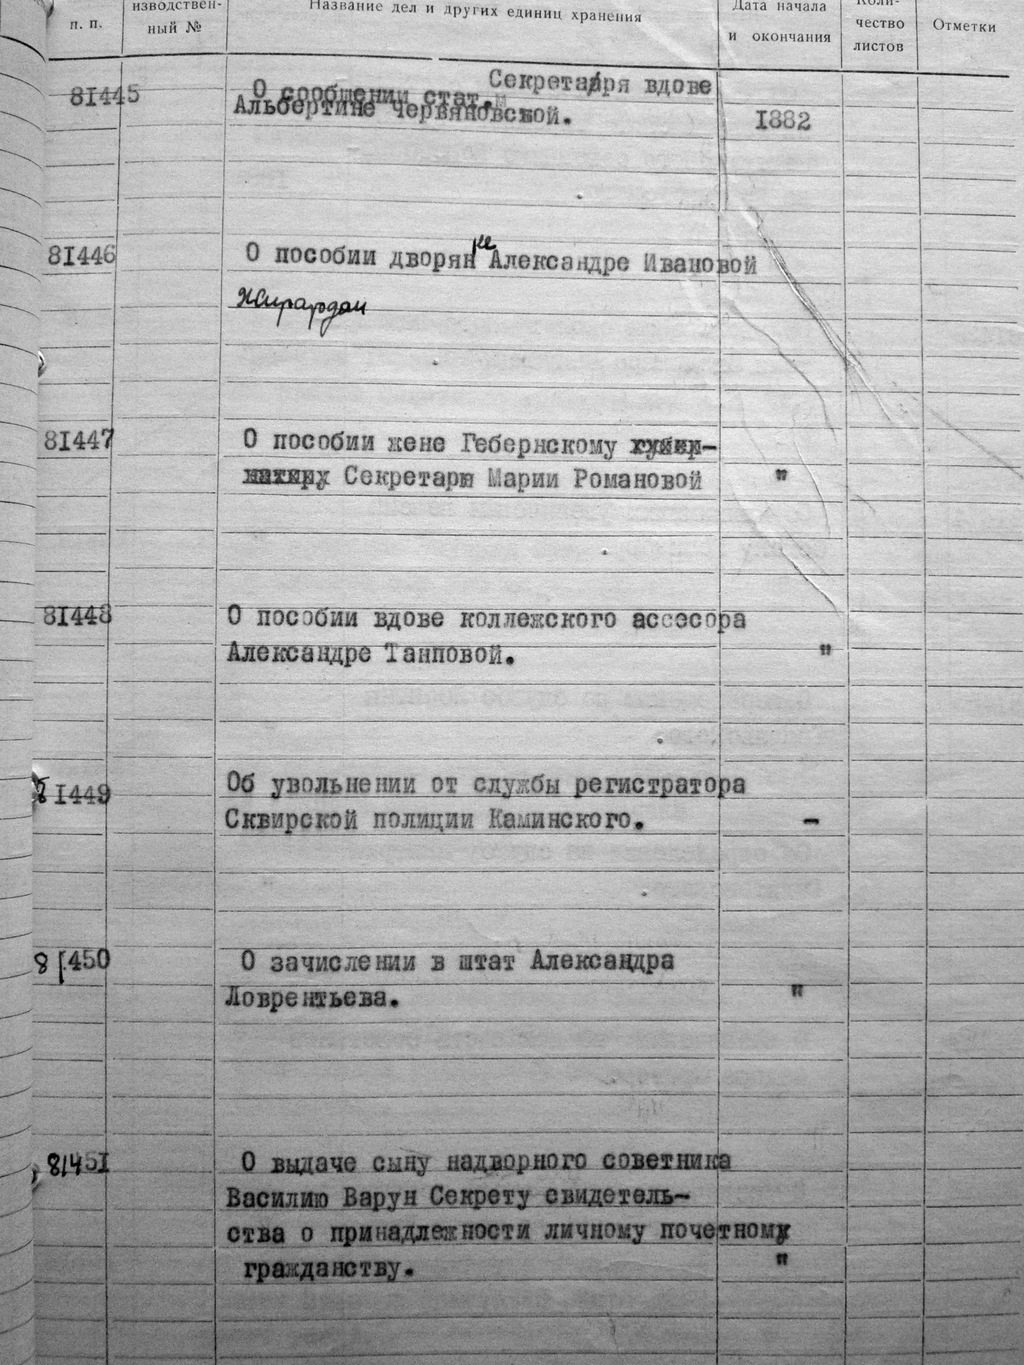 п. п.
изводствен-
ный №
Название дел и других единиц хранения
Дата начала
и окончания
Коли-
чество
листов
Отметки
81445
О сообщении стат. Секретаря вдове
Альбертине Червяновской.
1882
81446
О пособии дворянке Александре Ивановой
Жирардан
81447
О пособии жене Гебернскому губер-
натиру Секретарю Марии Романовой
"
81448
О пособии вдове коллежского ассесора
Александре Танповой.
"
81449
Об увольнении от службы регистратора
Сквирской полиции Каминского.
-
81450
О зачислении в штат Александра
Ловрентьева.
"
81451
О выдаче сыну надворного советника
Василию Варун Секрету свидетель-
ства о принадлежности личному почетному
гражданству.
"